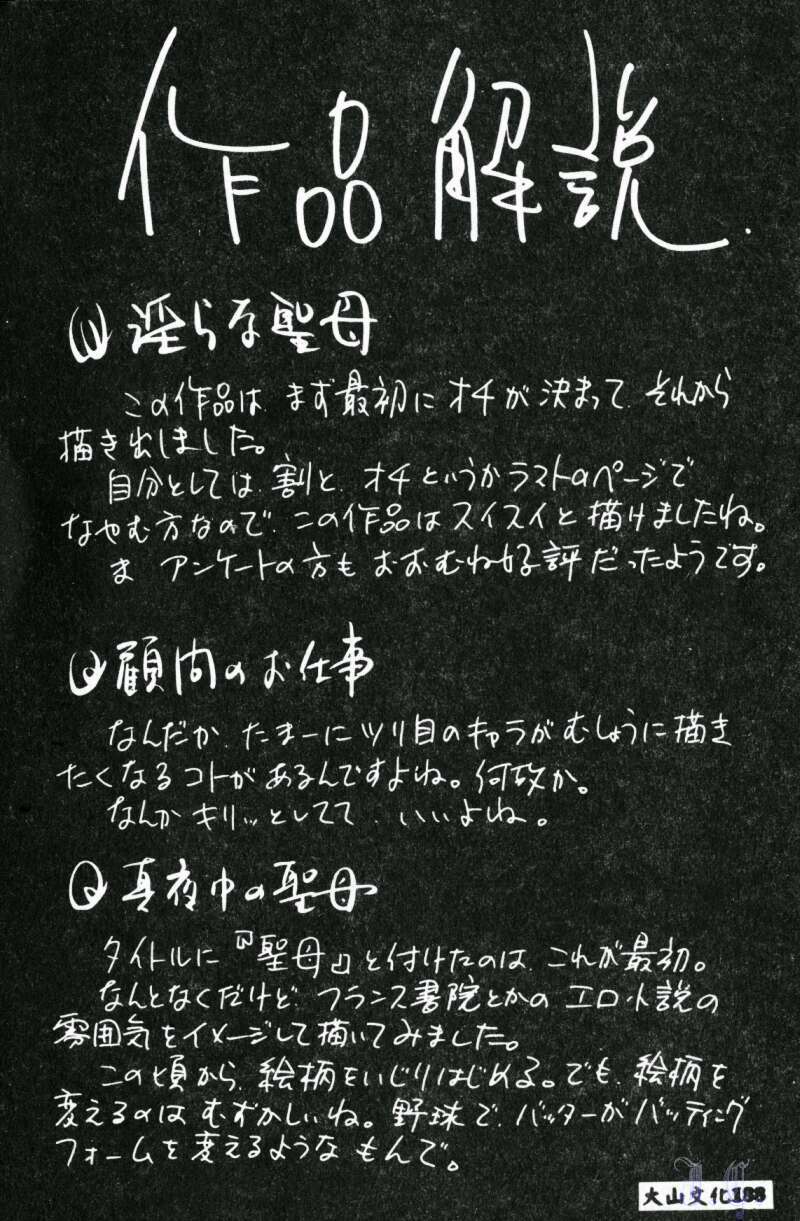 作品解説.
淫らな聖母
この作品は、まず最初にオチが決まって、それから
描き出しました。
自分としては、割と、オチというかラストのページで
なやむ方なので、この作品はスイスイと描けましたね。
ま アンケートの方も おおむね好評だったようです。
顧問のお仕事
なんだか、たまーにツリ目のキャラがむしょうに描き
たくなるコトがあるんですよね。何故か。
なんかキリッとしてて、いいよね。
真夜中の聖母
タイトルに『聖母』と付けたのは、これが最初。
なんとなくだけど、フランス書院とかのエロ小説の
雰囲気をイメージして描いてみました。
この頃から、絵柄をいじりはじめる。でも、絵柄を
変えるのはむずかしいね。野球で、バッターがバッティング
フォームを変えるようなもんで。
大山文化188